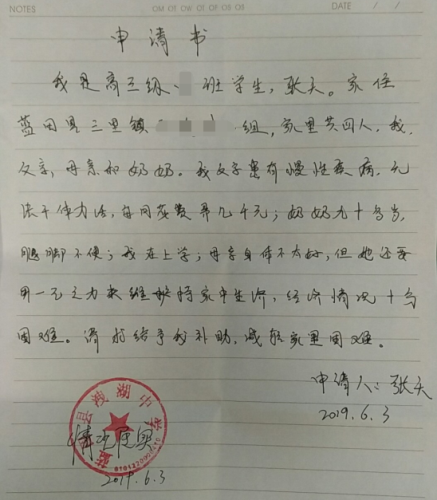 NOTES DATE / /
申请书
我是高三级 班学生，张天。家住
蓝田县三里镇 组，家里共四人，我、
父亲，母亲和奶奶。我父亲患有慢性疾病，无
法干体力活，每月花费好几千元；奶奶九十多岁，
腿脚不便；我在上学；母亲身体不太好，但她还要
用一己之力来维持家中生活，经济情况十分
困难。请求给予我补助，减轻家里困难。
申请人：张天
2019.6.3
县洩湖中学
情况属实
2019.6.3